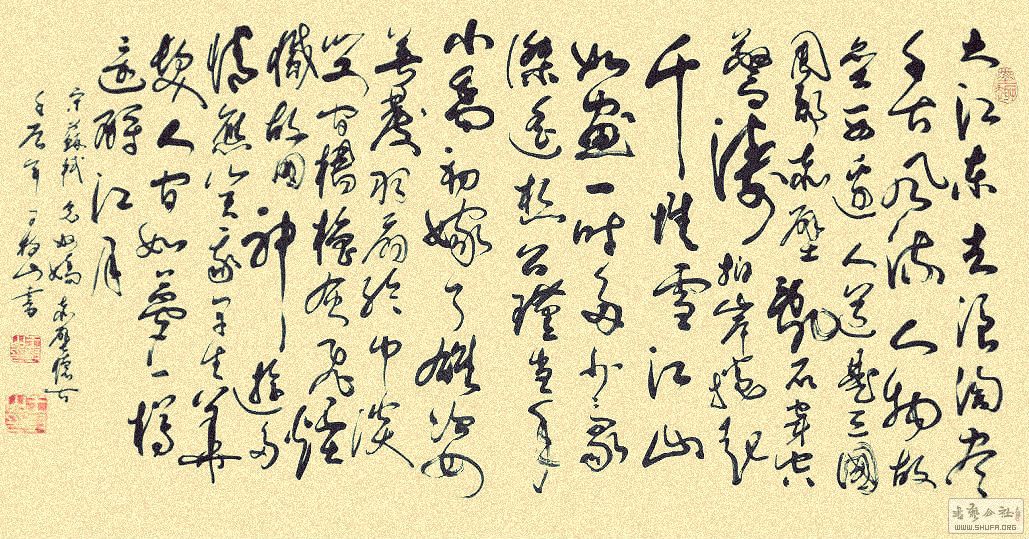 大江东去浪淘尽
千古风流人物故
垒西边人道是三國
周郎赤壁乱石穿空
惊涛拍岸捲起
千堆雪江山
如画一时多少豪
杰遥想公瑾当年
小喬初嫁了雄姿
英發羽扇纶巾谈
笑间檣櫓灰飞煙
灭故国神遊多
情應笑我早生華
髮人间如夢一樽
还酹江月
宋蘇軾念奴嬌赤壁懷古
山書
书艺公社
WWW.SHUFA.ORG